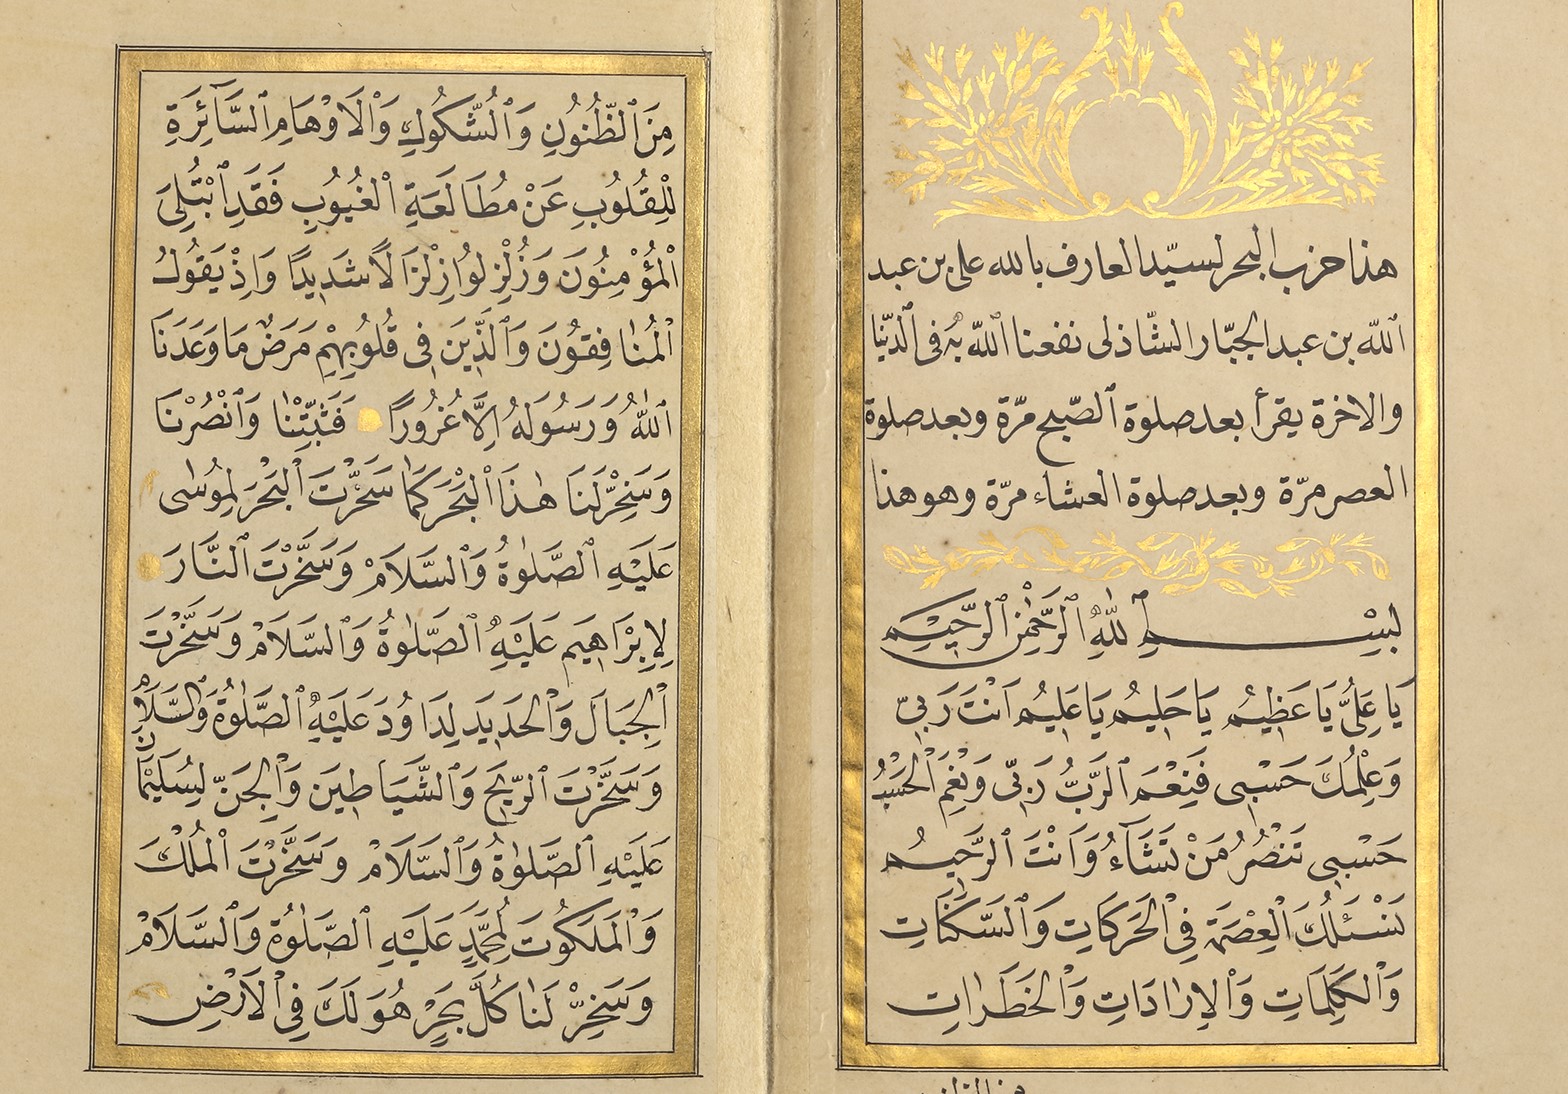 هذا حزب البحر لسيّد العارف بالله على بن عبد
ٱللّه بن عبد الجبّار الشّاذلى نفعنا ٱللّه به فى ٱلدّنيا
والاخرة يقرأ بعد صلوة ٱلصّبح مرّة وبعد صلوة
العصر مرّة وبعد صلوة العشاء مرّة وهو هذا
بِسْمِ ٱللّٰهِ ٱلرَّحْمٰنِ ٱلرَّحِيمِ
يَا عَلِىُّ يَا عَظِيمُ يَا حَلِيمُ يَا عَلِيمُ اَنْتَ رَبِّى
وَعِلْمُكَ حَسْبِى فَنِعْمَ ٱلرَّبُّ رَبِّى وَنِعْمَ ٱلْحَسْبُ
حَسْبِى تَنْصُرُ مَنْ تَشَآءُ وَاَنْتَ ٱلرَّحِيمُ
نَسْئَلُكَ ٱلْعِصْمَةَ فِى ٱلْحَرَكَاتِ وَٱلسَّكَنَاتِ
وَٱلْكَلِمَاتِ وَٱلْاِرَادَاتِ وَٱلْخَطَرَاتِ
مِنَ ٱلظُّنُونِ وَٱلشُّكُوكِ وَٱلْاَوْهَامِ ٱلسَّآئِرَةِ
لِلْقُلُوبِ عَنْ مُطَالَعَةِ ٱلْغُيُوبِ فَقَدِ ٱبْتُلِىَ
ٱلْمُؤْمِنُونَ وَزُلْزِلُوا زِلْزَالًا شَدِيدًا وَاِذْ يَقُولُ
ٱلْمُنَافِقُونَ وَٱلَّذِينَ فِى قُلُوبِهِمْ مَرَضٌ مَا وَعَدَنَا
ٱللّٰهُ وَرَسُولُهُ اِلَّا غُرُورًا فَثَبِّتْنَا وَٱنْصُرْنَا
وَسَخِّرْ لَنَا هٰذَا ٱلْبَحْرَ كَمَا سَخَّرْتَ ٱلْبَحْرَ لِمُوسٰى
عَلَيْهِ ٱلصَّلٰوةُ وَٱلسَّلَامُ وَسَخَّرْتَ ٱلنَّارَ
لِاِبْرَاهِيمَ عَلَيْهِ ٱلصَّلٰوةُ وَٱلسَّلَامُ وَسَخَّرْتَ
ٱلْجِبَالَ وَٱلْحَدِيدَ لِدَاوُدَ عَلَيْهِ ٱلصَّلٰوةُ وَٱلسَّلَامُ
وَسَخَّرْتَ ٱلرِّيحَ وَٱلشَّيَاطِينَ وَٱلْجِنَّ لِسُلَيْمَانَ
عَلَيْهِ ٱلصَّلٰوةُ وَٱلسَّلَامُ وَسَخَّرْتَ ٱلْمُلْكَ
وَٱلْمَلَكُوتَ لِمُحَمَّدٍ عَلَيْهِ ٱلصَّلٰوةُ وَٱلسَّلَامُ
وَسَخِّرْ لَنَا كُلَّ بَحْرٍ هُوَ لَكَ فِى ٱلْاَرْضِ